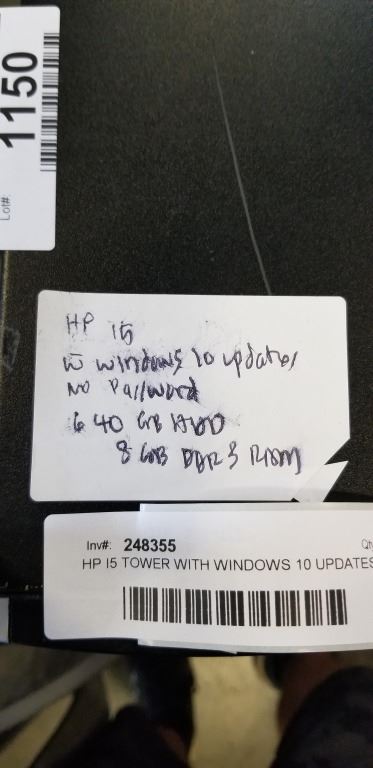 Lot#: 1150
HP i5
w windows 10 updates
No Password
640 GB HDD
8 GB DDR3 RAM
Inv#: 248355
Qty
HP I5 TOWER WITH WINDOWS 10 UPDATES